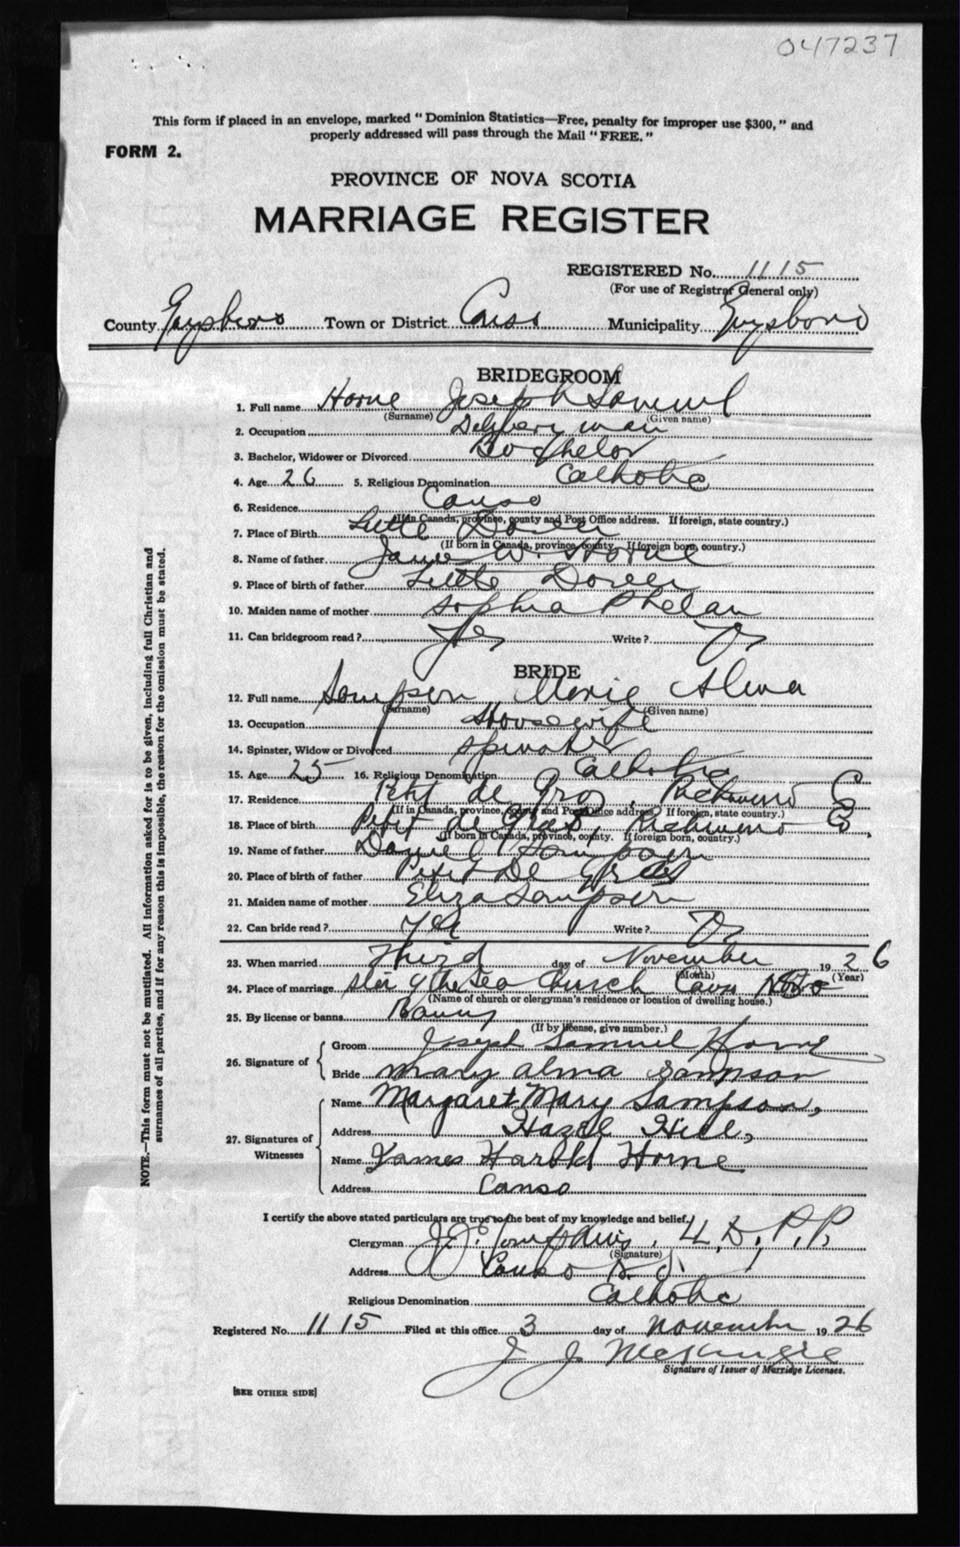 047237
This form if placed in an envelope, marked "Dominion Statistics—Free, penalty for improper use $300," and
properly addressed will pass through the Mail "FREE."
FORM 2.
PROVINCE OF NOVA SCOTIA
MARRIAGE REGISTER
REGISTERED No. 1115
(For use of Registrar General only)
County Guysboro Town or District Canso Municipality Guysboro
BRIDEGROOM
1. Full name Horne Joseph Samuel
(Surname) (Given name)
2. Occupation
3. Bachelor, Widower or Divorced Bachelor
4. Age 26 5. Religious Denomination Catholic
6. Residence Canso
(If in Canada, province, county and Post Office address. If foreign, state country.)
7. Place of Birth Little Dover
(If born in Canada, province, county. If foreign born, country.)
8. Name of father W. Horne
9. Place of birth of father Little Dover
10. Maiden name of mother Sophia Phelan
11. Can bridegroom read? Yes Write?
BRIDE
12. Full name Sampson Marie Alma
(Surname) (Given name)
13. Occupation Housewife
14. Spinster, Widow or Divorced Spinster
15. Age 25 16. Religious Denomination Catholic
17. Residence Petit de Gras, Richmond Co
(If in Canada, province, county and Post Office address. If foreign, state country.)
18. Place of birth Petit de Gras, Richmond Co.
(If born in Canada, province, county. If foreign born, country.)
19. Name of father Daniel Sampson
20. Place of birth of father Petit De Gras
21. Maiden name of mother Eliza Sampson
22. Can bride read? Yes Write?
23. When married Third day of November 1926
(Month) (Year)
24. Place of marriage Star of the Sea Church Canso
(Name of church or clergyman's residence or location of dwelling house.)
25. By license or banns Banns
(If by license, give number.)
26. Signature of
Groom Joseph Samuel Horne
Bride Mary Alma Sampson
27. Signatures of Witnesses
Name Margaret Mary Sampson,
Address Hazel Hill,
Name James Harold Horne
Address Canso
I certify the above stated particulars are true to the best of my knowledge and belief.
Clergyman J.J. Tompkins, P.P.
(Signature)
Address Canso N.S.
Religious Denomination Catholic
Registered No. 1115 Filed at this office 3 day of November 1926
J J McKinzie
Signature of Issuer of Marriage Licenses.
[SEE OTHER SIDE]
NOTE.—This form must not be mutilated. All information asked for is to be given, including full Christian and
surnames of all parties, and if for any reason this is impossible, the reason for the omission must be stated.